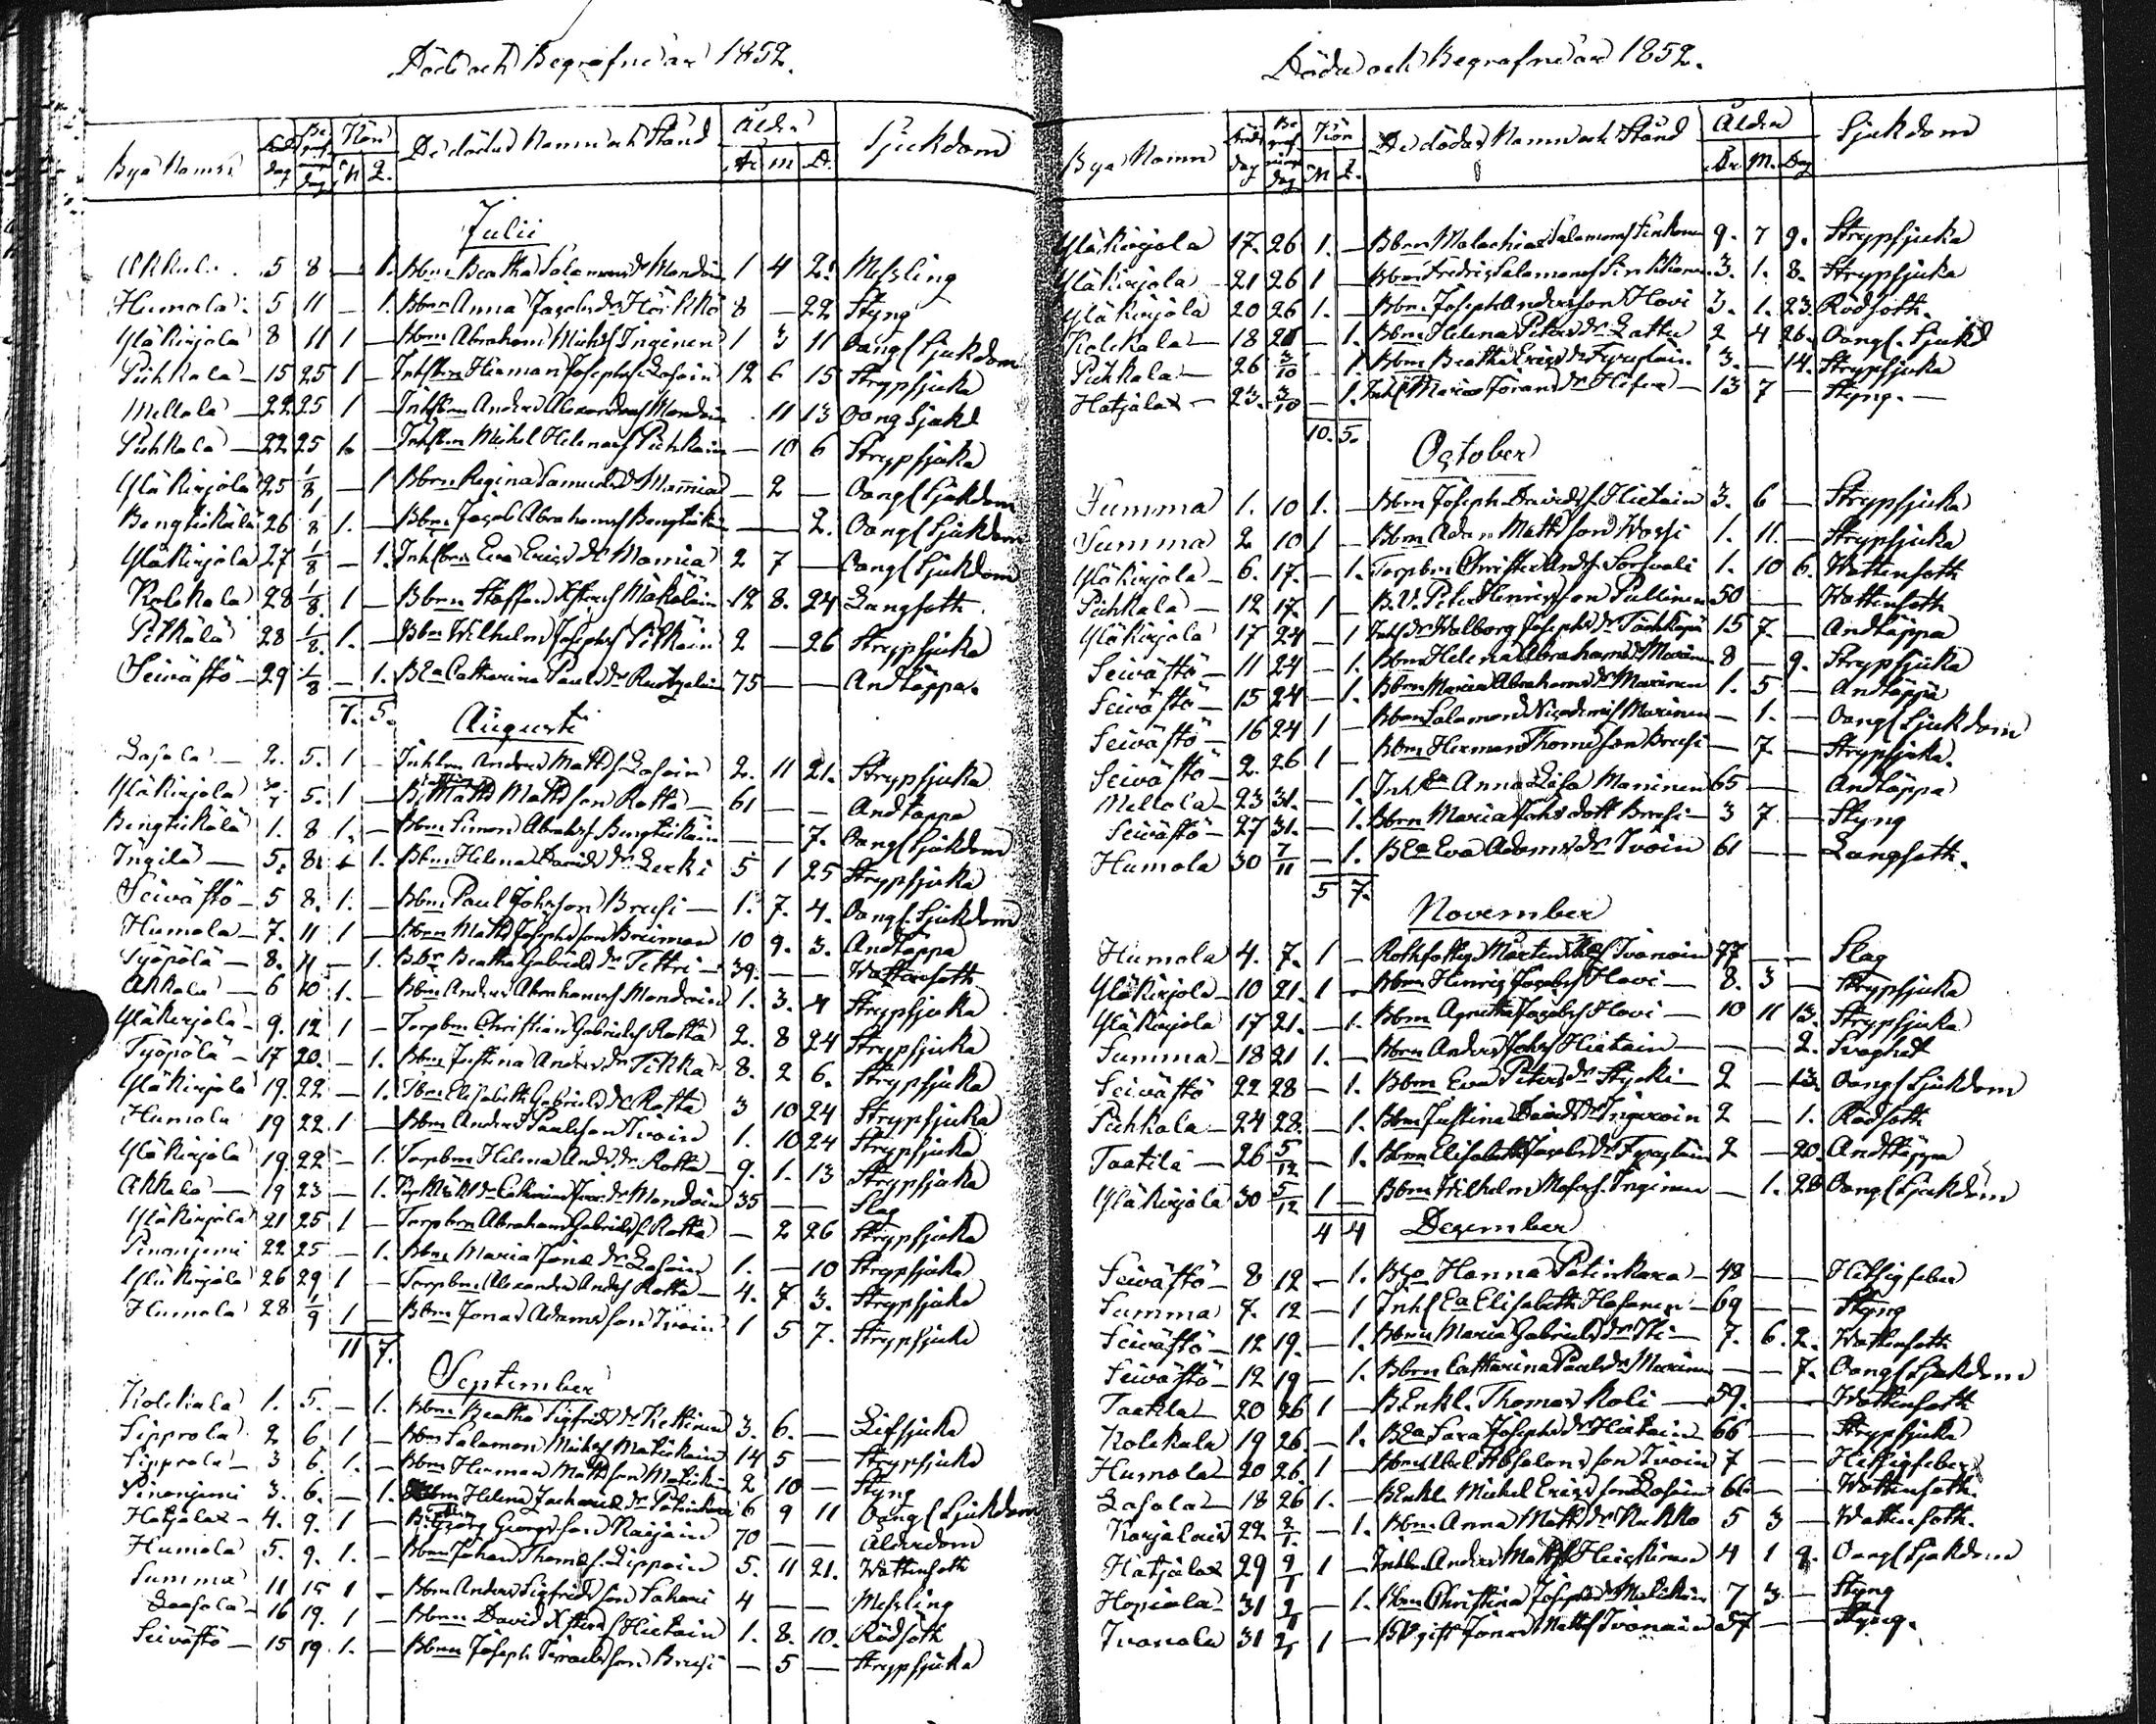 Död och Begrafne år 1852.
Bya Namn Död dag Begrafnings dag Kön M Q. De dödas Namn och Stånd Ålder År M D. Sjukdom
Julii
Akkala 5 8 — 1. Bbrn Beatha Salamonsdr Mondoin 1 4 2. Messling
Humola 5 11 — 1. Bbrn Anna Jacobsdr Hörkkö 8 — 22 Styng
Yläkirjola 8 11 1 — Bbrn Abraham Michelss Inginen 1 3 11 Oangf Sjukdom
Pihkala — 15 25 1 — Inhsbrn Herman Josephss Losoin 12 6 15 Strypsjuka
Mellola — 22 25 1 — Inhsbrn Anders Alexanders Mondoin . 11 13 Oang Sjukd
Pihkala — 22 25 1. — Inhsbrn Michel Helenas Pihkain — 10 6 Strypsjuka
Yläkirjola 25 1/8 — 1 Bbrn Regina Samuelsdr Mannia — 2 — Oangf Sjukdom
Bengtikälä 26 1/8 1. — Bbrn Jacob Abrahams Bengtikäin — — 2. Oangf Sjukdom
Yläkirjola 27 1/8 — 1. Inhsbrn Eva Ericsdr Mannia 2 7 — Oangf Sjukdom
Kolckala 28 1/8. 1 — Bbrn Staffan Kfters Mäkeläin 12 8. 24 Langsoth
Pitkälä 28 1/8. 1. — Bbrn Wilhelm Josephs Pitkäin 2 — 26 Strypsjuka
Seivästö — 29 1/8 — 1. BEa Catharina Paulsdr Ruotzalain 75 — — Andtäppa.
7. 5.
Augusti
Losola — 2. 5. 1 — Inhbrn Anders Matts Losoin 2. 11 21. Strypsjuka
Yläkirjola 30/7 5. 1 — B. Matts Mattsson Rotta — 61 — — Andtäppa
Bengtikälä 1. 8 1. — Bbrn Simon Abrahs Bengtikäin — — 7. Oangf Sjukdom
Ingilä — 5. 8. 1. Bbrn Helena Davidsdr Lecki 5 1 25 Strypsjuka
Seivästö — 5 8. 1. — Bbrn Paul Johsson Brusi — 1. 7. 4. Oangf. Sjukdom
Humola — 7. 11 1 — Bbrn Matts Josephsson Breiman 10 9. 3. Andtäppa
Työpölä — 8. 11 — 1. Bbr Beatha Gabrielsdr Tettri — 39. — — Wattensoth
Akkala — 6 10 1. — Bbrn Anders Abrahams Mondoin 1. 3. 4 Strypsjuka
Yläkirjola — 9. 12 1 — Torpbrn Christian Gabriels Rotta 2. 8 24 Strypsjuka
Työpölä — 17 20. — 1. Bbrn Justina Andersdr Tikka 8. 2 6. Strypsjuka
Yläkirjola 19. 22 — 1. Tbrn Elisabeth Gabrielsdr Rotta 3 10 24 Strypsjuka
Humola 19 22. 1 — Bbrn Anders Paulsson Ivoin 1. 10 24 Strypsjuka
Yläkirjola 19. 22 — 1. Torpbrn Helena Andsdr Rotta — 9. 1. 13 Strypsjuka
Akkala — 19 23 — 1. Catharina Mondoin 35 — — Slag
Yläkirjola 21 25 1 — Torpbrn Abraham Gabriels Rotta — 2 26 Strypsjuka
Pinonjemi 22 25 — 1. Bbrn Maria Jonasdr Losoin 1. — 10 Strypsjuka
Yläkirjola 26 29 1 — Torpbrn Alexander Anders Rotta — 4. 7 3. Strypsjuka
Humola 28 1/9 1 — Bbrn Jonas Adamsson Ivoin 1 5 7. Strypsjuka
11 7.
September
Kolckala 1. 5. — 1. Bbrn Beatha Sigfridsdr Kettinen 3. 6. — Lifsjuka
Sipprola 2 6 1 — Bbrn Salamon Michels Matikain 14 5 — Strypsjuka
Sipprola — 3 6. 1. — Bbrn Herman Mattsson Matikain 2 10 — Styng
Pinonjemi 3. 6. — 1. Bbrn Helena Zachariasdr Patinkara 6 9 11 Oangf Sjukdom
Hatjalax — 4. 9. 1 — Georg Georgsson Raijain 70 — — Ålderdom
Humola 5. 9. 1. — Bbrn Johan Thomas. Lippoin 5. 11 21. Wattensoth
Summa 11 15 1 — Bbrn Anders Sigfridsson Sakari 4 — — Messling
Laasola — 16 19. 1 — Bbrn David Kfters Hietain 1. 8. 10. Rödsoth
Seivästö — 15 19 1. — Bbrn Joseph Israelsson Brusi — 5 — Strypsjuka
Döde och Begrafne år 1852.
Bya Namn Döds dag Begrafnings dag Kön M Q. De dödas Namn och Stånd Ålder År. M. Dag Sjukdom
Yläkirjola 17. 26 1. — Bbrn Malachias Salamons Sinkonen 9. 7 9. Strypsjuka
Yläkirjola 21 26 1 — Bbrn Fredric Salamons Sinkkonen 3. 1. 8. Strypsjuka
Yläkirjola 20 26 1. — Bbrn Joseph Andersson Hovi 3. 1. 23. Rödsoth.
Kolckala — 18 26 — 1. Bbrn Helena Petersdr Lattu 2 4 26. Oangf. Sjukd
Pihkala — 26 3/10 — 1. Bbrn Beatha Ericsdr Fyrystäin 3. — 14. Strypsjuka
Hatjalax — 23. 3/10 — 1. Inhs Maria Joransdr Häfvä — 13 7 — Styng. —
10. 5.
October
Summa 1. 10 1. — Bbrn Joseph Davids Hietain 3. 6 — Strypsjuka
Summa 2 10 1 — Bbrn Adam Mattsson Wossi 1. 11. — Strypsjuka
Yläkirjola — 6. 17. — 1. Torpbrn Christina Ands. Sorsvali 1. 10 6. Wattensoth
Pihkala — 12 17. 1 — B.U. Peter Henricsson Pullinen 50 — Wattensoth
Yläkirjola 17 24 — 1 Inhsdr Walborg Josephsdr 15 7. — Andtäppa
Seivästö — 11 24 — 1. Bbrn Helena Abrahamsdr Maninen 8 — 9. Strypsjuka
Seivästö — 15 24 — 1. Bbrn Maria Abrahamsdr Maninen 1. 5 — Andtäppa
Seivästö — 16 24 1 — Bbrn Salamon Nicodemus Maninen — 1. — Oangf Sjukdom
Seivästö — 2. 26 1 — Bbrn Herman Thomasson Brusi — 7. — Strypsjuka.
Mellola — 23 31. — 1. InhEa Anna Lisa Maninen 65 — Andtäppa
Seivästö — 27 31. — 1. Bbrn Maria Johsdott Brusi — 3 7 — Styng
Humola 30 7/11 — 1. BEa Eva Adamsdr Ivoin 61 — — Langsoth.
5 7.
November
Humola 4. 7. 1 — Rothfattig Mårten Ivanain 77 — — Slag
Yläkirjola — 10 21. 1 — Bbrn Henric Jacobs Hovi — 8. 3 — Strypsjuka
Yläkirjola 17 21. — 1. Bbrn Agnetha Jacobs Hovi — 10 11 13. Strypsjuka
Summa — 18 21 1. — Bbrn Anders Johs Hietain — — — 2. Svaghet
Seivästö 22 28 — 1. Bbrn Eva Petersdr Stycki — 2 — 13. Oangf Sjukdom
Pihkala — 24 28. — 1. Bbrn Justina Davidsdr Ingeroin 2 — 1. Rödsoth
Taatila — 26 5/12 — 1. Bbrn Elisabeth Jacobsdr Fyrystäin 2 — 20. Andtäppa
Yläkirjola 30 5/12 1 — Bbrn Wilhelm Moses. Inginen — 1. 28 Oangf Sjukdom
4 4
December
Seivästö — 8 12 — 1. Hanna Patinkara — 48 — — Hitsigfeber
Summa 7. 12 — 1 Inhs Ea Elisabeth Hosanen — 69 — — Styng
Seivästö — 12 19. — 1. Bbrn Maria Gabrielsdr Thi — 7. 6. 2. Wattensoth
Seivästö — 12 19 — 1. Bbrn Catharina Paulsdr Maninen — — 7. Oangf Sjukdom
Taatila — 20 26 1 — B.Enkl. Thomas Koli — 59. — — Wattensoth
Kolckala 19 26. — 1. BEa Sara Josephsdr Hietain — 66 — — Strypsjuka
Humola — 20 26. 1 — Bbrn Abel Absalonsson Ivoin 7 — — Hitsigfeber
Losola — 18 26 1. — BEnkl. Michel Ericsson Losoin 66 — — Wattensoth.
Karjalais 22 2/1. — 1. Bbrn Anna Mattsdr Kukko 5 3 — Wattensoth.
Hatjalax 29 2/1 1 — Inhbrn Anders Matts Heickinen 4 1 9. Oangf Sjukdom
Hopiala — 31 2/1 — 1. Bbrn Christina Josephsdr Matikain 7 3 — Styng
Ivanala 31 2/1 1 — gift Jonas Matts Ivanain 57 — — Styng.